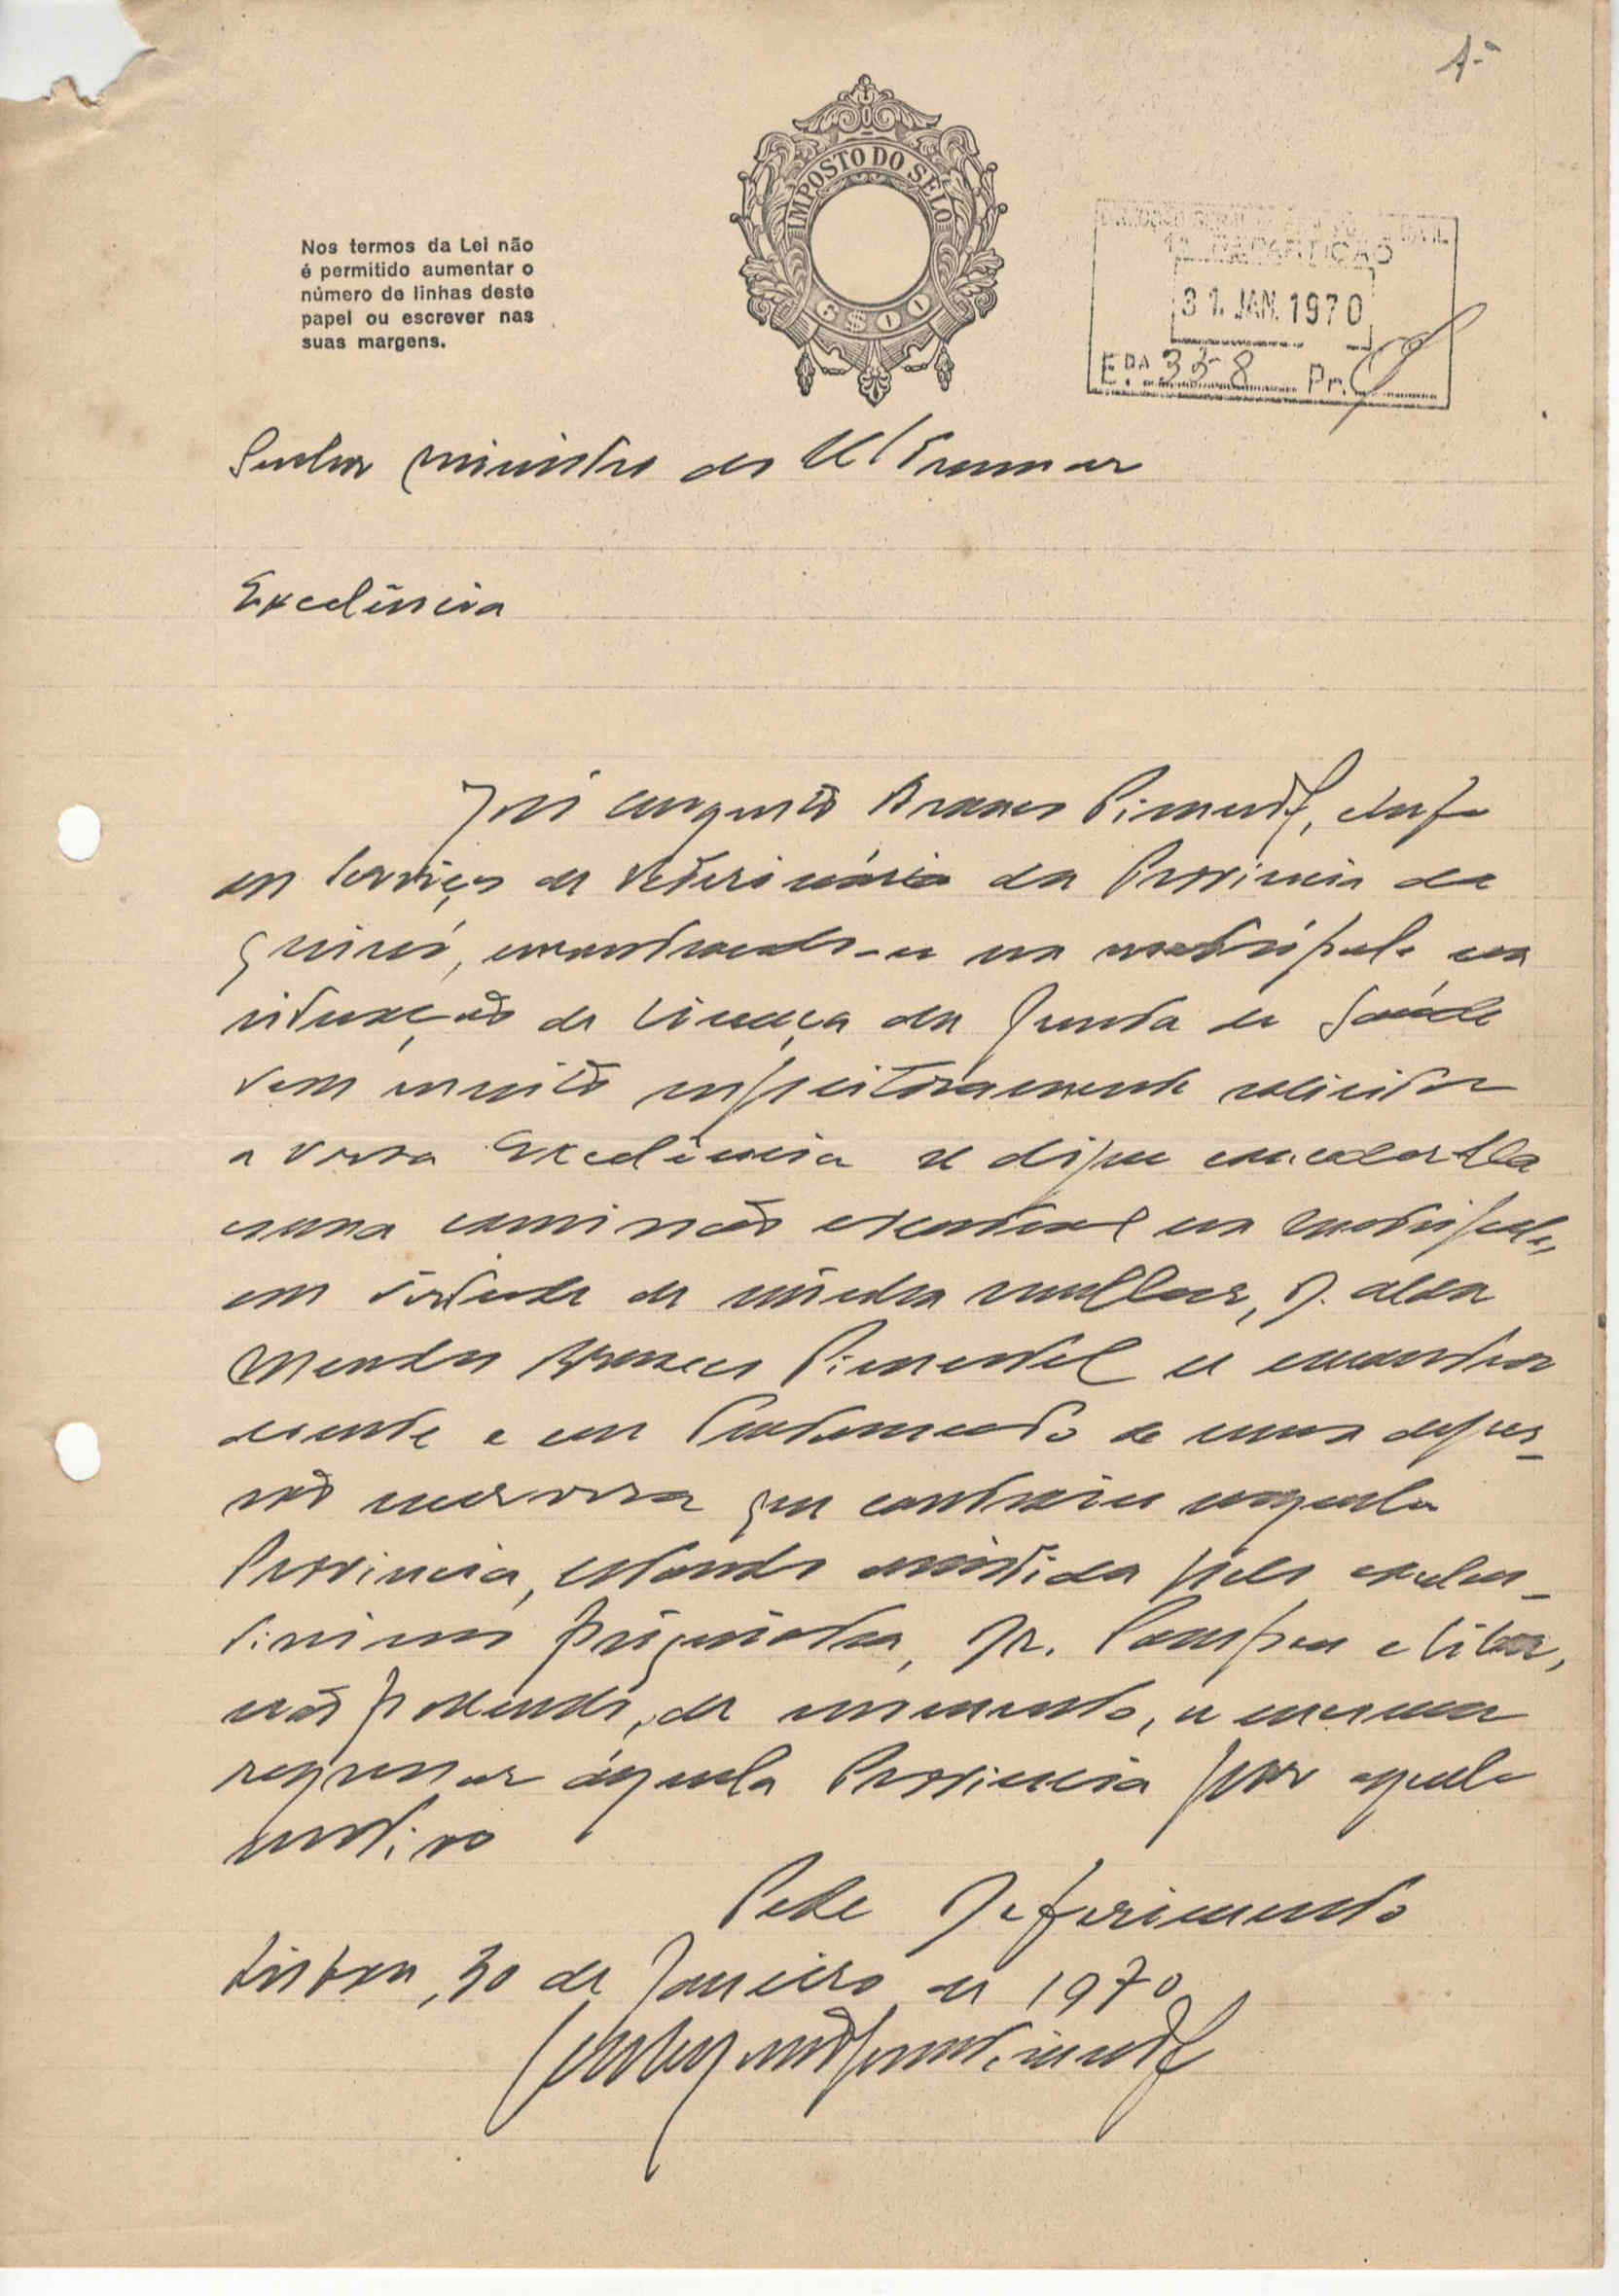 1ª
IMPOSTO DO SÊLO
6$00
Nos termos da Lei não
é permitido aumentar o
número de linhas deste
papel ou escrever nas
suas margens.
1ª REPARTIÇÃO
31. JAN. 1970
E.DA 358 Pr.
Senhor ministro do Ultramar
Excelência
José Augusto Pimentel, chefe
dos Serviços de Veterinária da Província da
Guiné, encontrando-se na metrópole na
situação de licença da Junta de Saúde
vem muito respeitosamente solicitar
a Vossa Excelência se digne conceder-lhe
uma comissão eventual na metrópole,
em virtude de minha mulher, D. Alda
Mendes Pimentel se encontrar
doente e em tratamento de uma depres-
são nervosa que contraiu naquela
Província, estando assistida pelo excelen-
tíssimo psiquiatra, Dr. Pompeu e Silva,
não podendo, de momento, a mesma
regressar àquela Província por aquele
motivo
Pede Deferimento
Lisboa, 30 de Janeiro de 1970